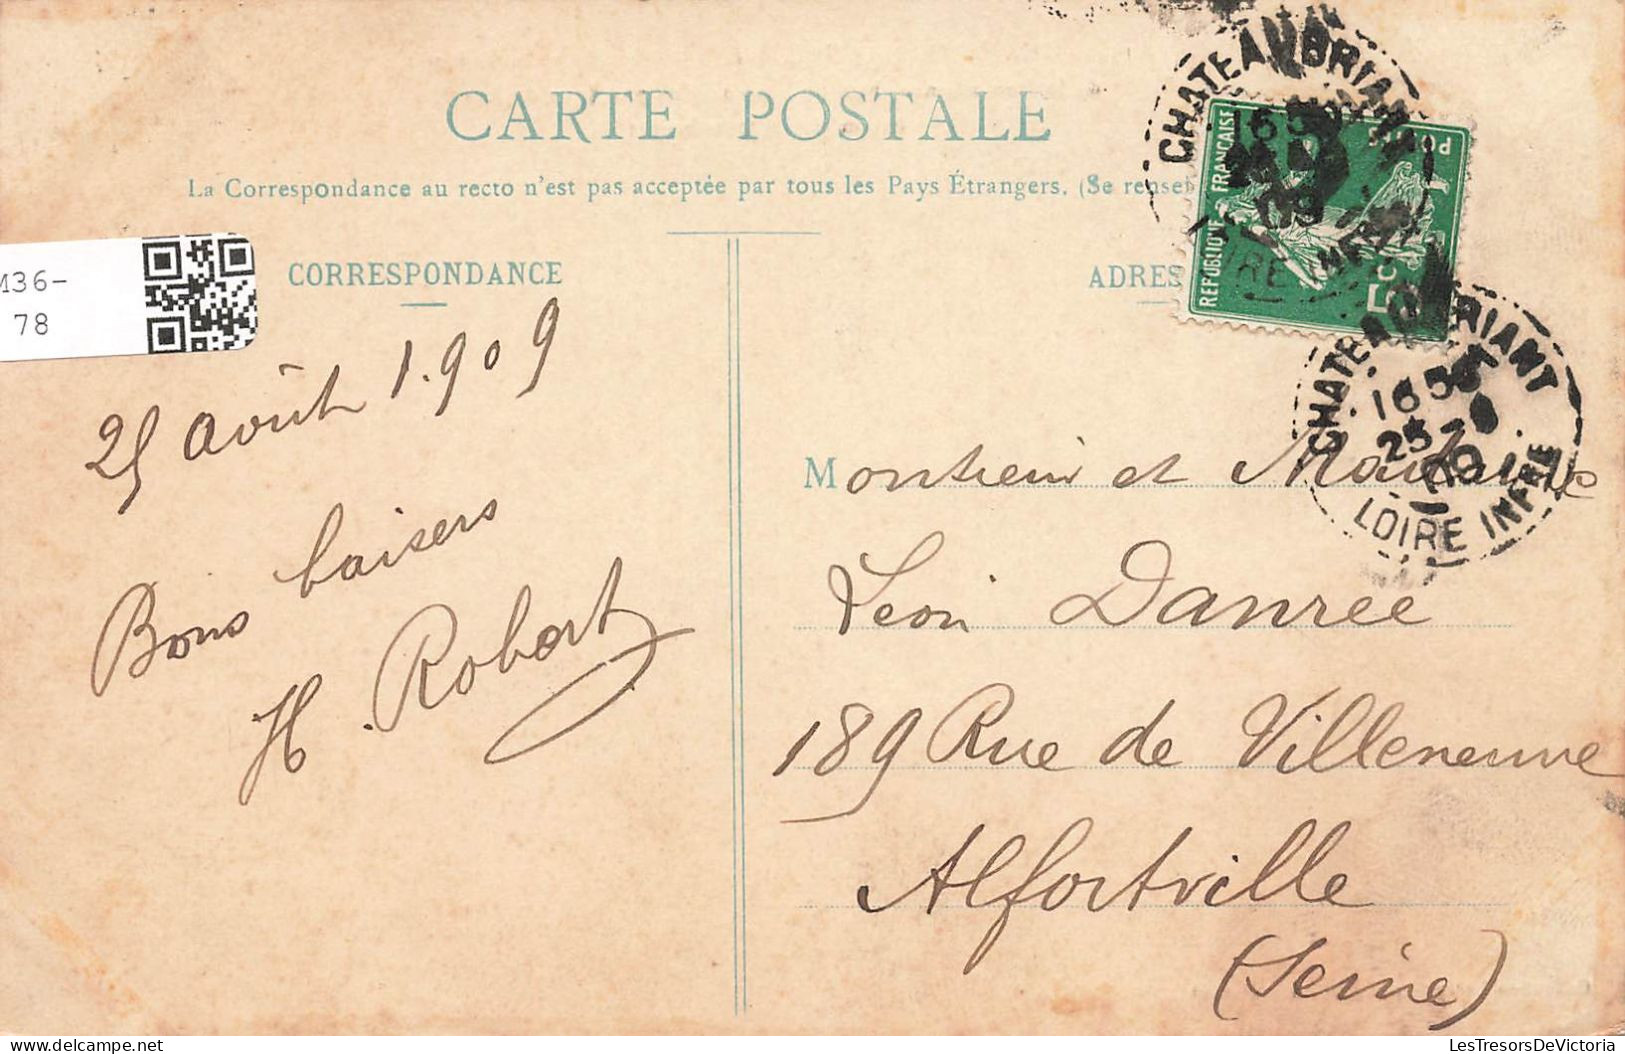 CARTE POSTALE
La Correspondance au recto n'est pas acceptée par tous les Pays Étrangers. (Se rensei
CORRESPONDANCE
ADRES
M36-
78
25 août 1.909
Bons baisers
H. Robert
Monsieur et Madame
Léon Danrée
189 Rue de Villeneuve
Alfortville
(Seine)
REPUBLIQUE FRANÇAISE
POSTES
5c
CHATEAUBRIANT
16 5
09
CHATEAUBRIANT
16 55
25 -8
09
LOIRE INFRE
LesTresorsDeVictoria
www.delcampe.net